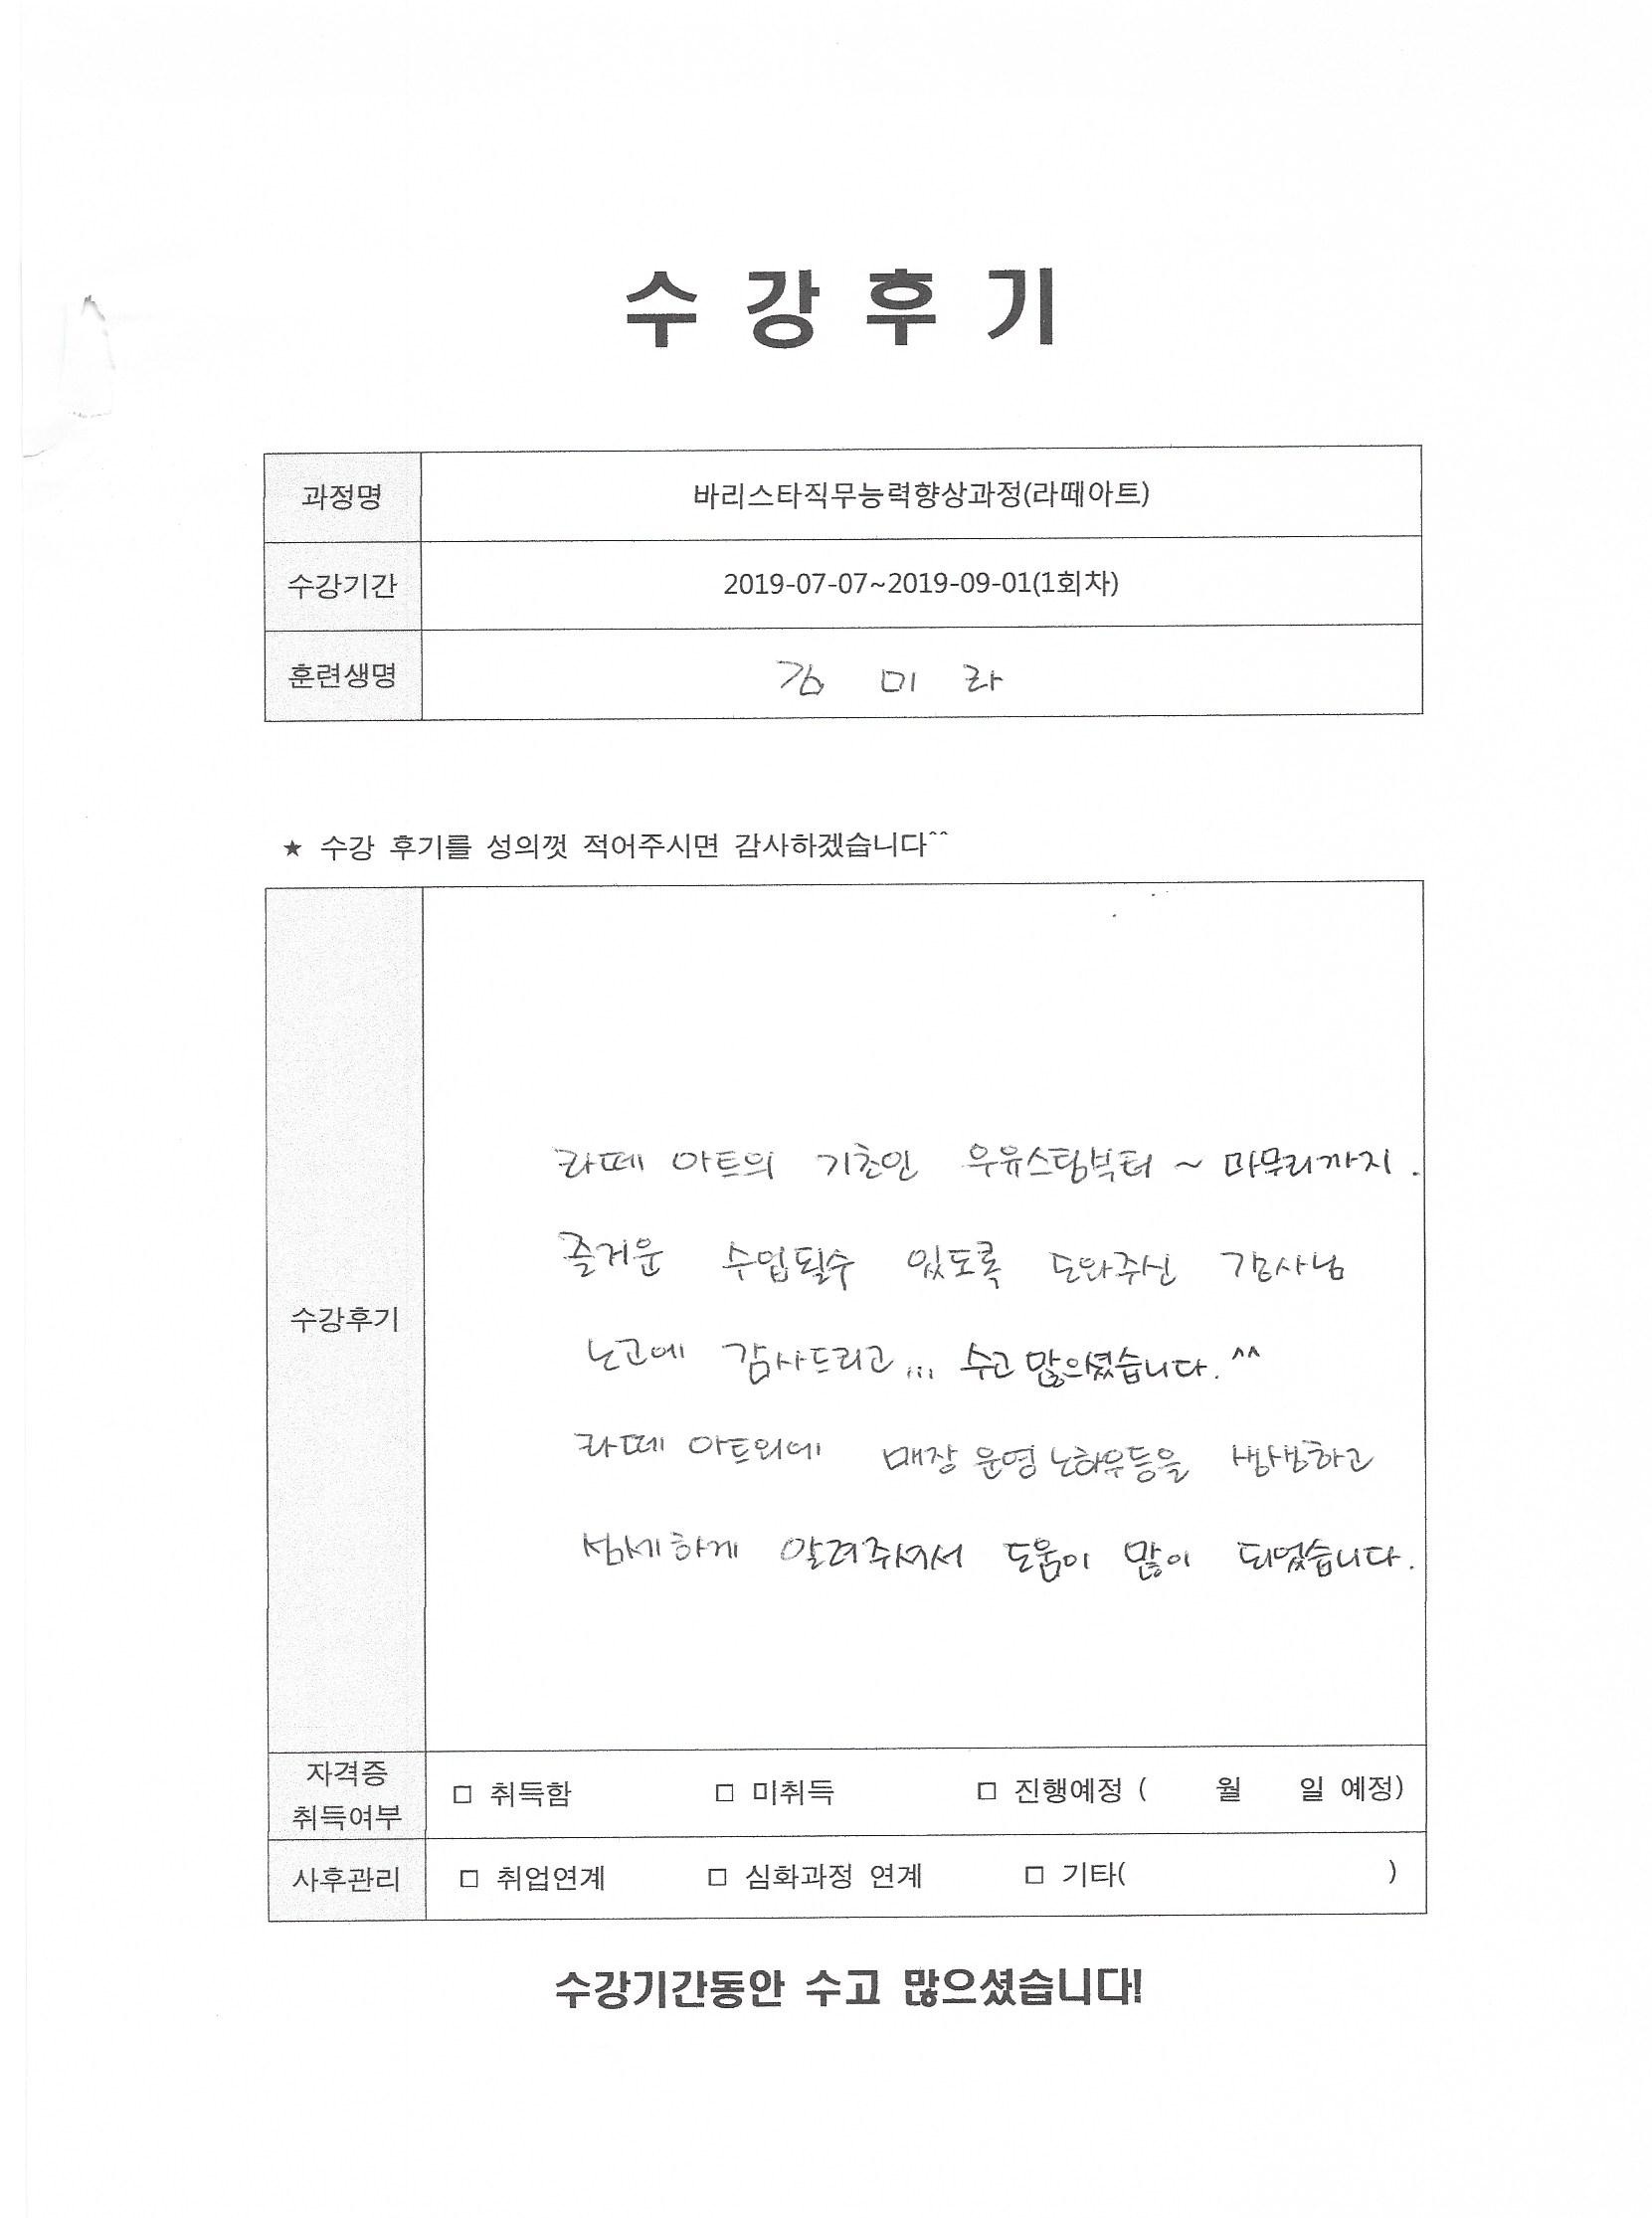 수강후기
과정명 바리스타직무능력향상과정(라떼아트)
수강기간 2019-07-07~2019-09-01(1회차)
훈련생명 김 미 라
★ 수강 후기를 성의껏 적어주시면 감사하겠습니다^^
라떼 아트의 기초인 우유스팀부터 ~ 마무리까지.
즐거운 수업될수 있도록 도와주신 강사님
노고에 감사드리고... 수고 많으셨습니다. ^^
수강후기
라떼 아트외에 매장 운영 노하우등을 생생하고
섬세하게 알려주셔서 도움이 많이 되었습니다.
자격증
취득여부
□ 취득함 □ 미취득 □ 진행예정 ( 월 일 예정)
사후관리 □ 취업연계 □ 심화과정 연계 □ 기타( )
수강기간동안 수고 많으셨습니다!